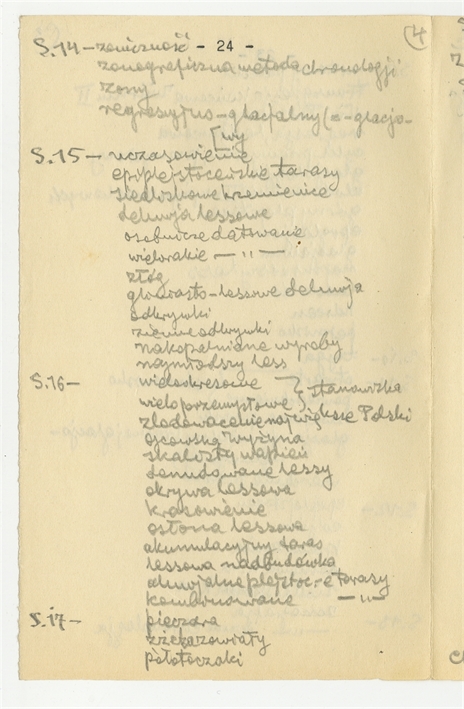 - 24 -
4
S.14 - zoniczność
zonograficzna metoda chronologji
zony
regresyjno-glacjalny (= -glacjo-
[wy
S.15 - uczasowienie
epiplejstoceńskie tarasy
siedliskowe krzemienice
deluwja lessowe
osobnicze datowanie
wielorakie - " -
złóg
gliniasto-lessowe deluwja
odkrywki
ziemne odkrywki
nakopalniane wyroby
najmłodszy less
S.16 - wielookresowe } stanowiska
wieloprzemysłowe }
zlodowacenie największe Polski
ojcowska wyżyna
skalisty wapień
denudowane lessy
okrywa lessowa
krasowienie
osłona lessowa
akumulacyjny taras
lessowa nadbudówka
aluwjalne plejstoc-e tarasy
kombinowane - " -
S.17 - pieczara
półotoczaki